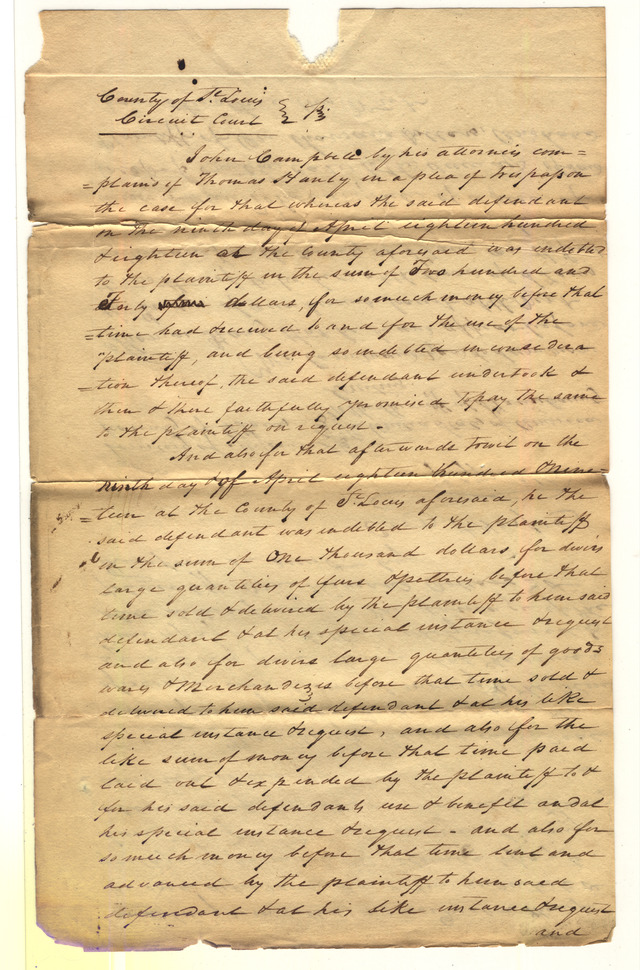 County of St Louis
Circuit Court } ss
John Campbell by his attorneys com=
=plains of Thomas Hanly in a plea of trespass on
the case for that whereas the said defendant
on the ninth day of April eighteen hundred
& eighteen at the County aforesaid was indebted
to the plaintiff in the sum of Two hundred and
Forty dollars, for so much money before that
=time had & received to and for the use of the
plaintiff, and being so indebted in considera
=tion thereof, the said defendant undertook &
then & there faithfully promised to pay the same
to the plaintiff on request.
And also for that afterwards towit on the
ninth day of April eighteen hundred & nine
=teen at the County of St Louis aforesaid, he the
said defendant was indebted to the plaintiff
in the sum of One thousand dollars, for divers
large quantities of furs & peltries before that
time sold & delivered by the plaintiff to him said
defendant & at his special instance & request
and also for divers large quantities of goods
wares & Merchandezes before that time sold &
delivered to him said defendant & at his like
special instance & request, and also for the
like sum of money before that time paid
laid out & expended by the plaintiff to &
for his said defendants use & benefit and at
his special instance & request - and also for
so much money before that time lent and
advanced by the plaintiff to him said
defendant & at his like instance & request
and